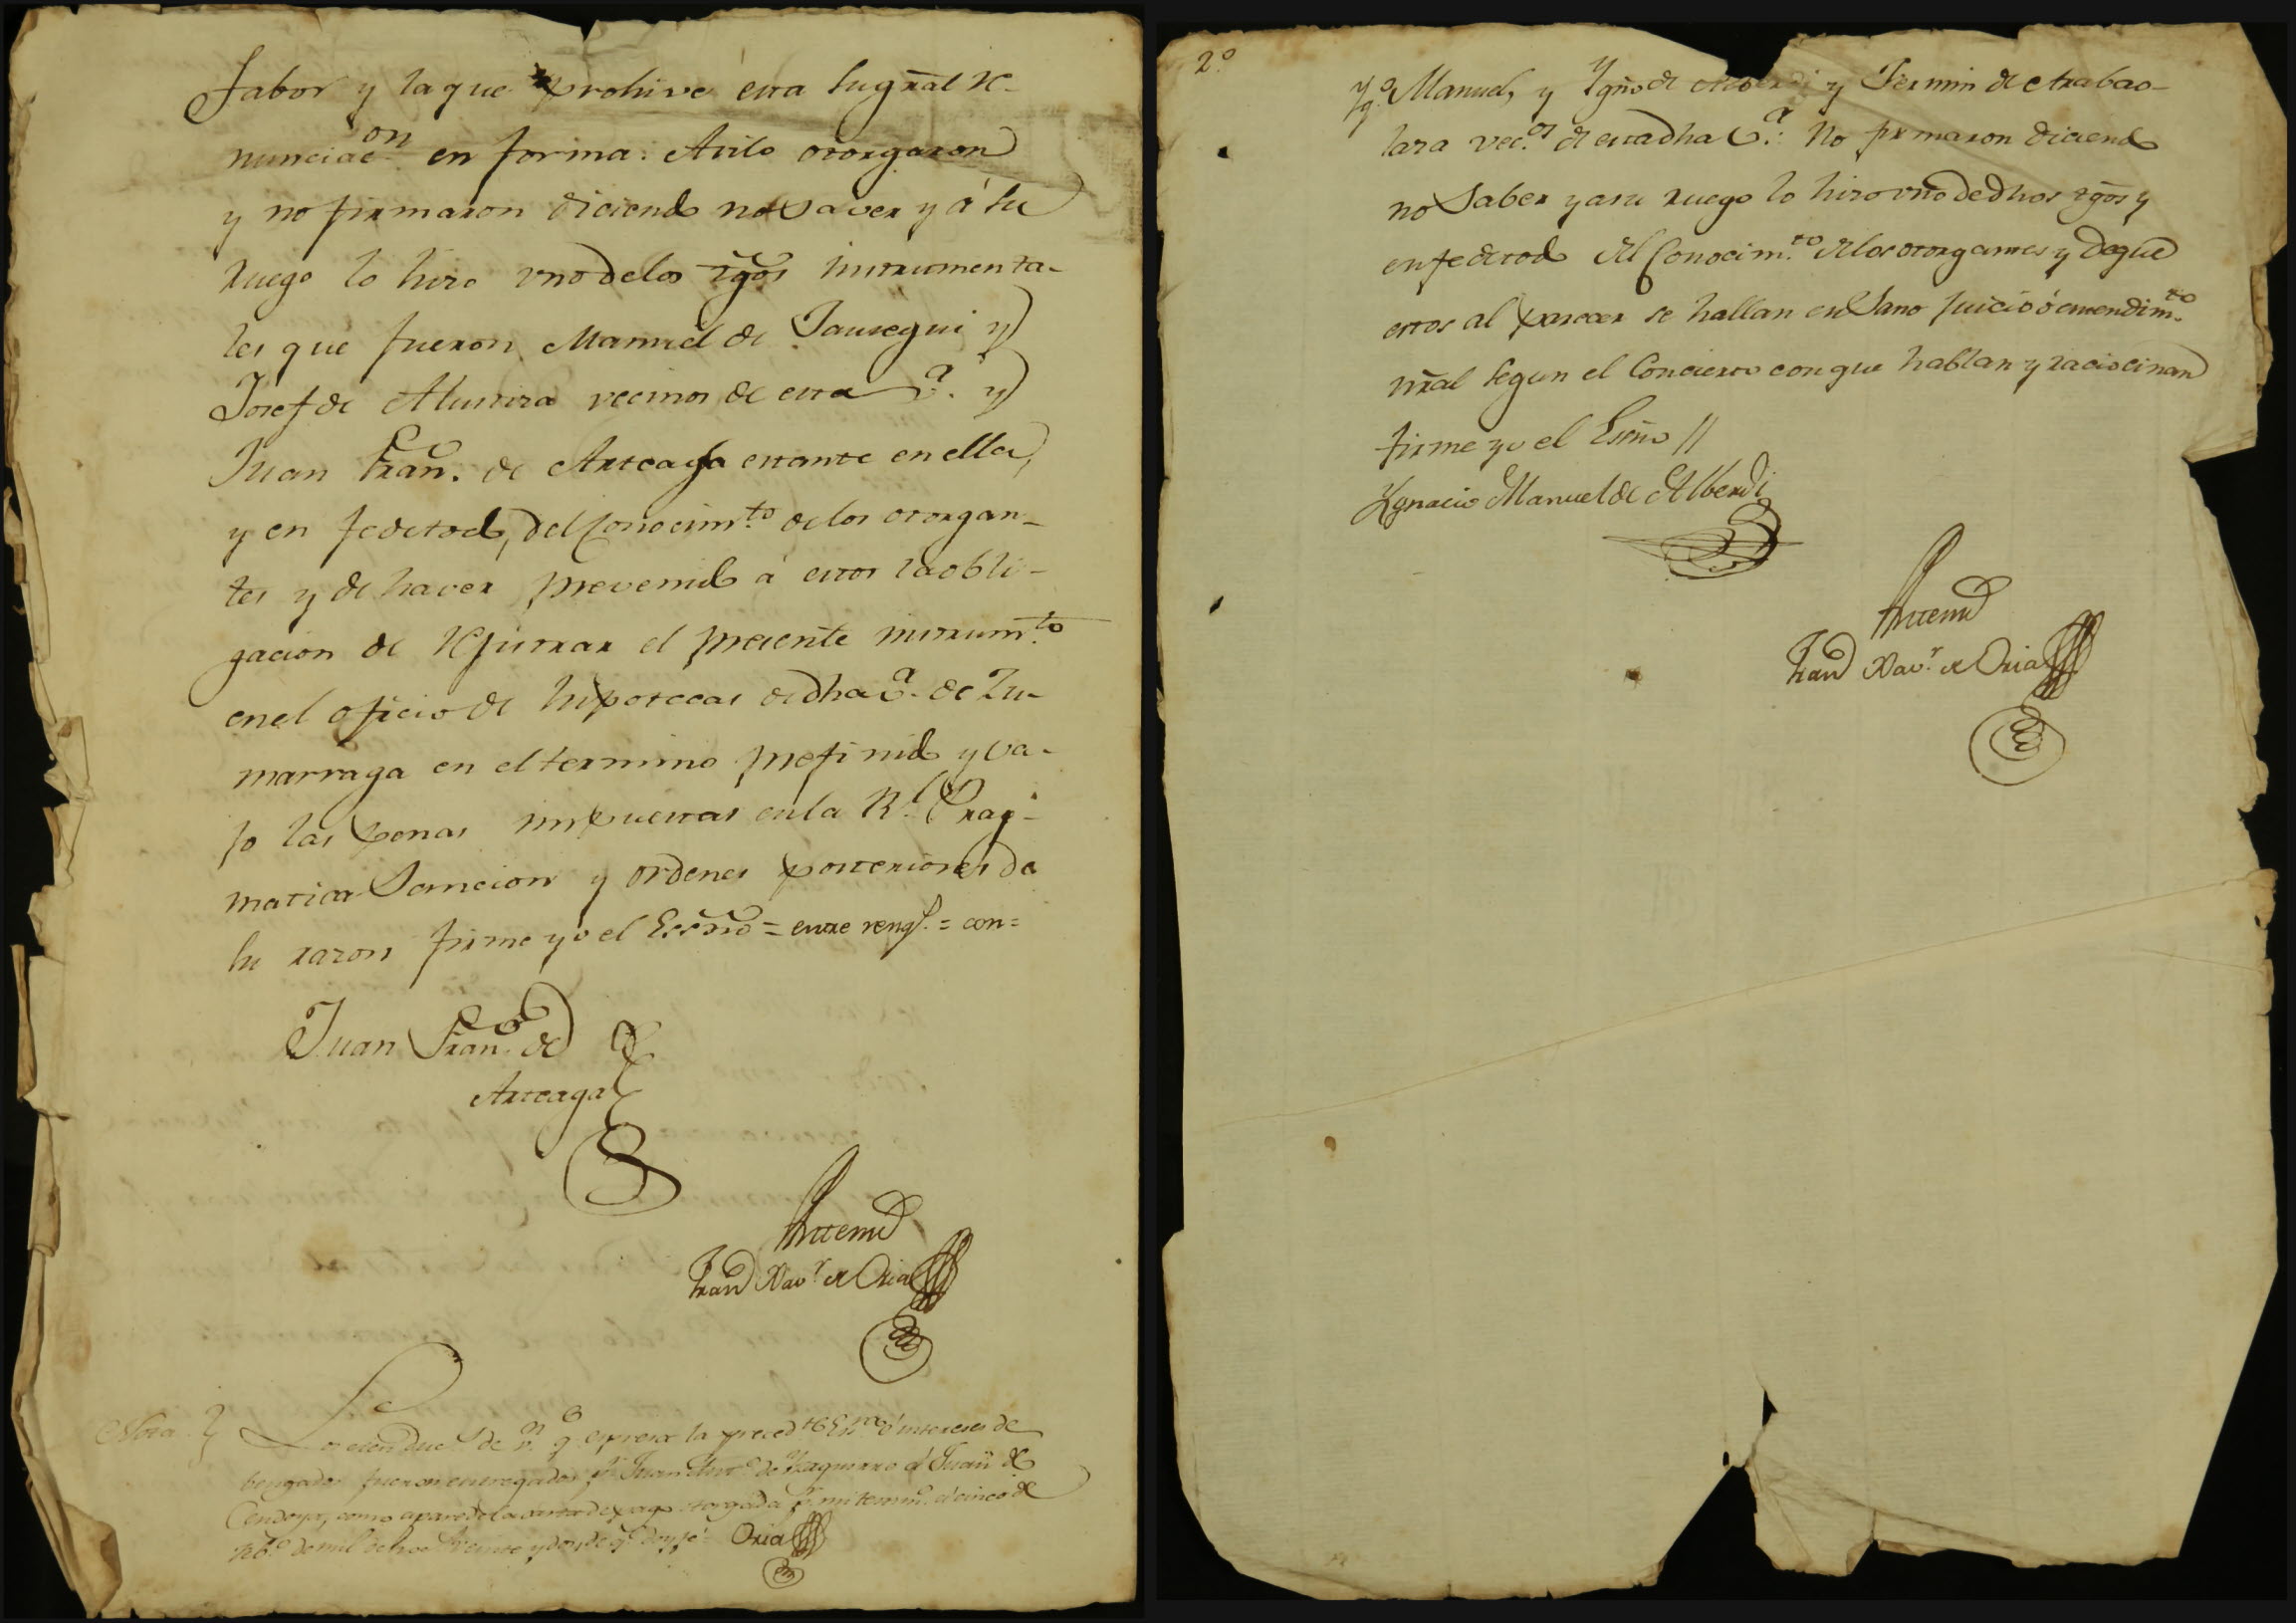 fabor y la que prohive esta su gral re-
nunciac.on en forma: Asilo otorgaron
y no firmaron diciendo no saver y á su
ruego lo hizo vno de los tgos instrumenta-
les que fueron Manuel de Jauregui y
Josef de vecinos de esta V.a y
Juan Fran.co de Arteaga estante en ella,
y en fe de todo, del Conocim.to de los otorgan-
tes y de haver prevenido á estos la obli-
gacion de rejistrar el presente instrum.to
en el oficio de hipotecas de dha V.a de Zu-
marraga en el termino prefinido y va-
jo las penas impuestas en la R.l Prag-
matica Sancion y ordenes posteriores de
su razon firme yo el Essno = entre rengl.s = con =
Juan Fran.co de
Arteaga
Antemi
Fran.co Xav.r de Oria
Nota
Los de v.n q.e expresa la preced.te Es.ra é intereses de
bengados fueron entregados p.r Juan de Yzaguirre á Juan de
Cendoya, como aparece de la carta de pago otorgada p.r mi testim.o á cinco de
de mil ochoc.s veinte y dos, de q.e doy fé. Oria
2.o
Manuel, y Ygn.o de Alberdi y Fermin de Arabao-
laza vec.os de esta dha V.a: No firmaron diciendo
no Saber y a su ruego lo hizo vno de dhos tgos y
en fe de todo del Conocim.to de los otorgantes y de que
estos al parecer se hallan en Sano juicio ó entendim.to
nral segun el Concierto con que hablan y raciocinan
firme yo el Esno //
Ygnacio Manuel de Alberdi
Antemi
Fran.co Xav.r de Oria